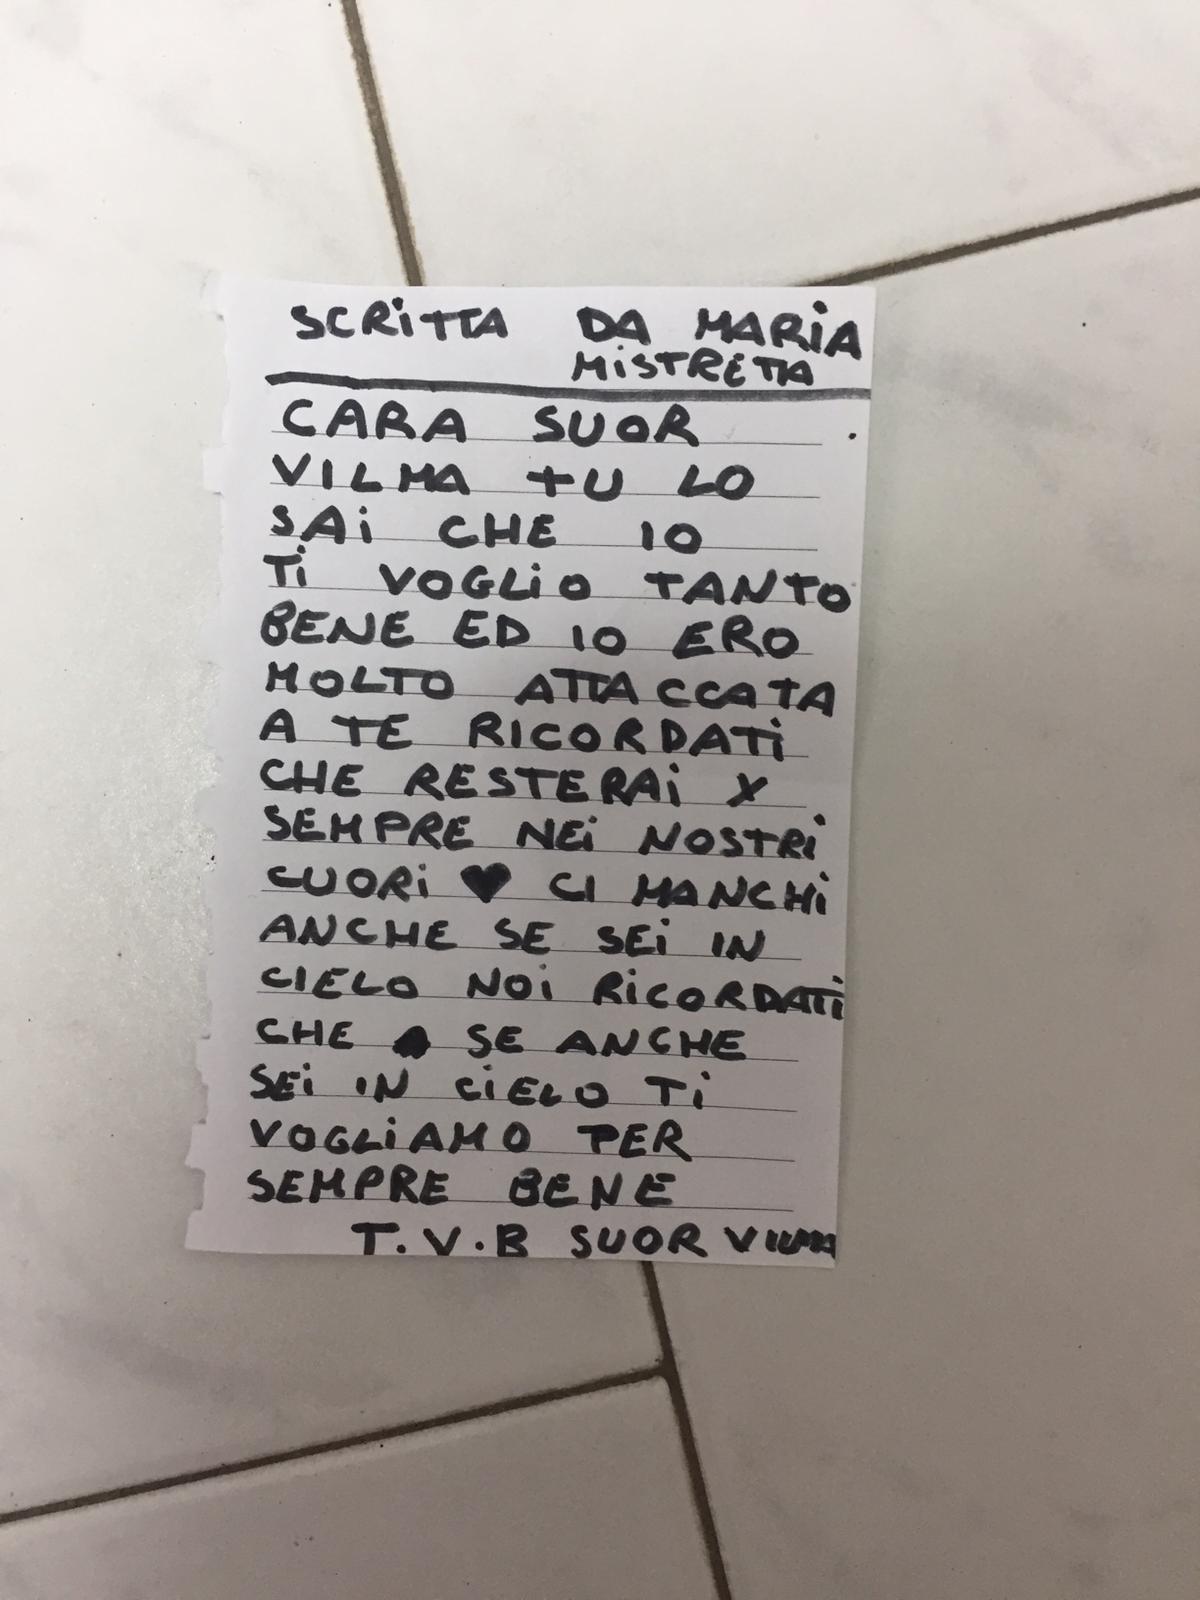 SCRiTTA DA MARiA
MiSTRETTA
CARA SUOR
VILMA TU LO
SAi CHE IO
Ti VOGLiO TANTO
BENE ED IO ERO
MOLTO ATTACCATA
A TE RICORDATi
CHE RESTERAi X
SEMPRE NEi NOSTRi
CUORi ♥ CI MANCHi
ANCHE SE SEi IN
CIELO NOi RiCORDATi
CHE SE ANCHE
SEi IN CiELO Ti
VOGLiAMO PER
SEMPRE BENE
T.V.B SUOR VILMA